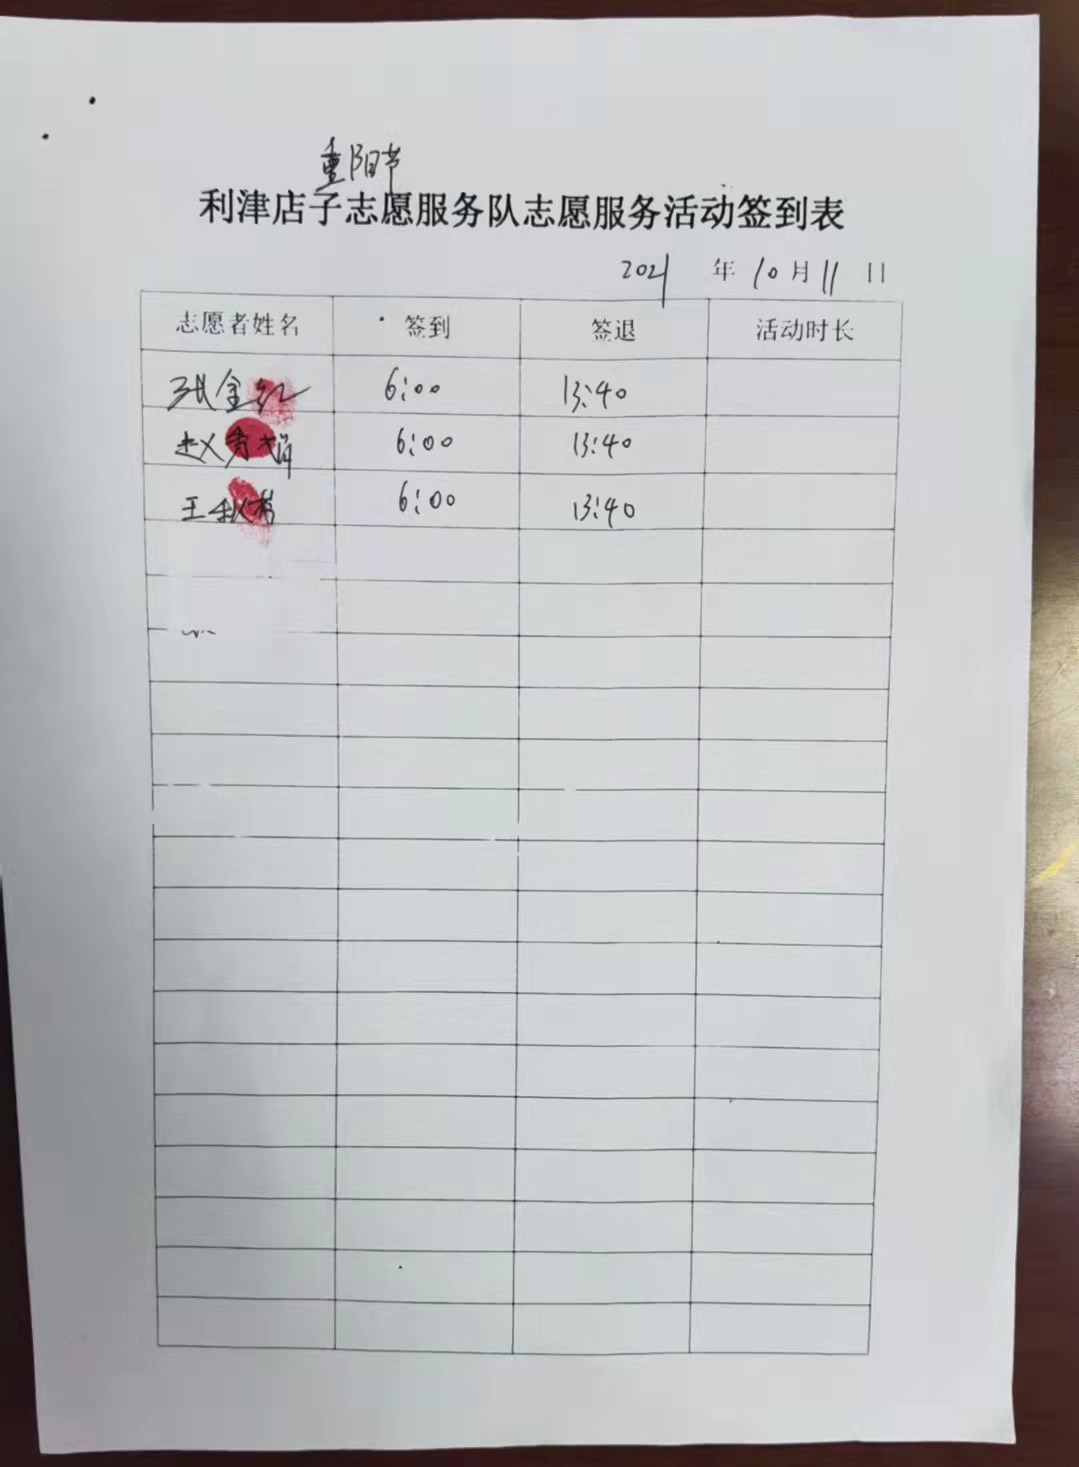 重阳节
利津店子志愿服务队志愿服务活动签到表
2021 年 10 月 11 日
志愿者姓名 签到 签退 活动时长
张金红 6:00 13:40
赵秀娟 6:00 13:40
王秋 6:00 13:40